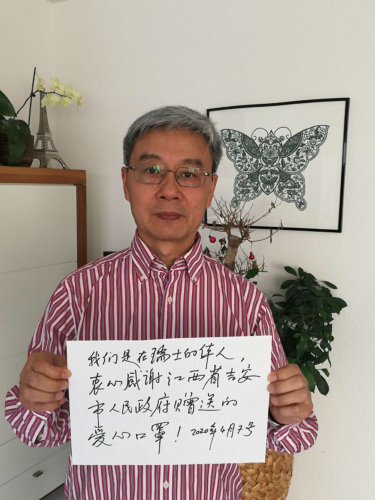 我们是在瑞士的华人，
衷心感谢江西省吉安
市人民政府赠送的
爱心口罩！2020年4月7号